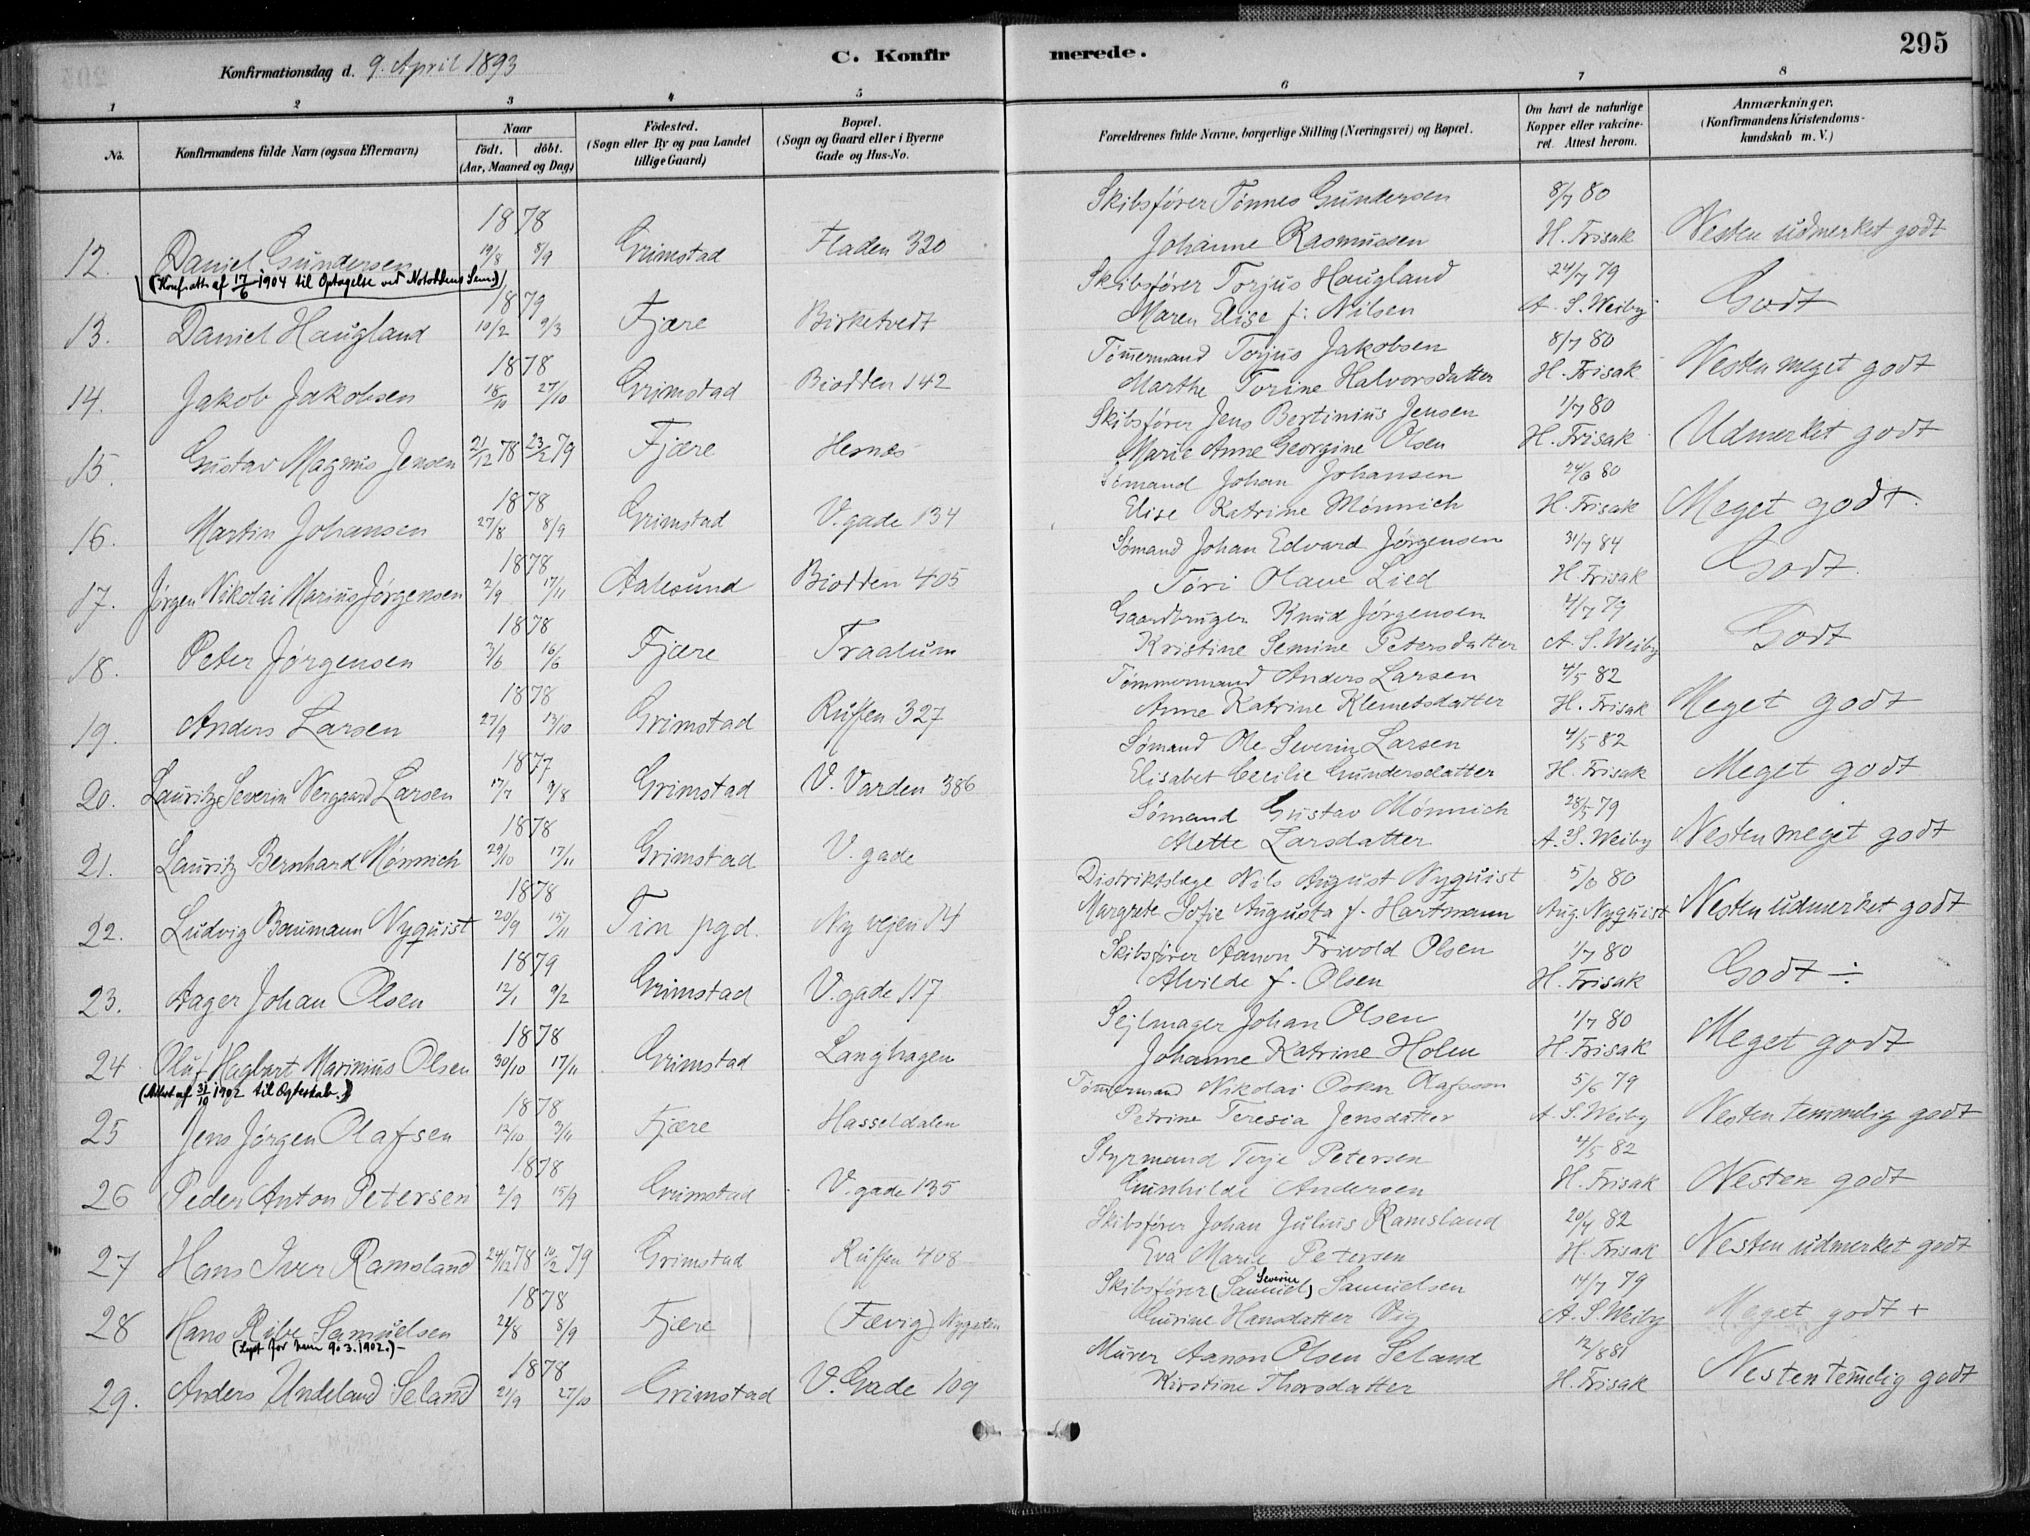 295
C. Konfirmerede.
Konfirmationsdag d. 9. April 1893
1 2 3 4 5 6 7 8
No. Konfirmandens fulde Navn (ogsaa Efternavn) Naar født. døbt. (Aar, Maaned og Dag) Fødested. (Sogn eller By og paa Landet tillige Gaard) Bopæl. (Sogn og Gaard eller i Byerne Gade og Hus-No. Forældrenes fulde Navne, borgerlige Stilling (Næringsvei) og Bopæl. Om havt de naturlige Kopper eller vakcineret. Attest herom. Anmærkninger. (Konfirmandens Kristendomskundskab m. V.)
1878 Skibsfører Tønnes Gundersen 8/7 80
12. Daniel Gundersen 19/8 8/9 Grimstad Fladen 320 Johanne Rasmussen H. Frisak Nesten udmerket godt
(Konf.att. af 17/6 1904 til Optagelse ved Notoddens Sem.)
1879 Skibsfører Torjus Haugland 24/7 79
13. Daniel Haugland 10/2 9/3 Fjære Birketvedt Maren Elise f: Nilsen A. S. Weiby Godt
1878 Tømmermand Torjus Jakobsen 8/7 80
14. Jakob Jakobsen 18/10 27/10 Grimstad Biodden 142 Marthe Torine Halvorsdatter H. Frisak Nesten meget godt
Skibsfører Jens Bertinius Jensen 1/7 80
15. Gustav Magnus Jensen 21/12 78 23/2 79 Fjære Hesnæs Marie Anne Georgine Olsen H. Frisak Udmerket godt
1878 Sømand Johan Johansen 24/6 80
16. Martin Johansen 27/8 8/9 Grimstad V. gade 134 Elise Katrine Mønnich H. Frisak Meget godt.
1878 Sømand Johan Edvard Jørgensen 31/7 84
17. Jørgen Nikolai Marius Jørgensen 2/9 17/11 Aalesund Biodden 405 Tori Olave Lied H. Frisak Godt.
1878 Gaardbruger Knud Jørgensen 4/7 79
18. Peter Jørgensen 3/6 16/6 Fjære Traalum Kristine Semine Petersdatter A. S. Weiby Godt
1878 Tømmermand Anders Larsen 4/5 82
19. Anders Larsen 27/9 13/10 Grimstad Ruften 327 Anne Katrine Klemetsdatter H. Frisak Meget godt
1877 Sømand Ole Severin Larsen 4/5 82
20. Lauritz Severin Vergaard Larsen 17/7 9/8 Grimstad V. Varden 386 Elisabet Cecilie Gundersdatter H. Frisak Meget godt
1878 Sømand Gustav Mønnich 28/5 79
21. Lauritz Bernhard Mønnich 29/10 17/11 Grimstad V. gade Mette Larsdatter A. S. Weiby Nesten meget godt
1878 Distriktslæge Nils August Nyquist 5/6 80
22. Ludvig Baumann Nyquist 20/9 15/11 Tin pgd. Ny vejen 14 Margrete Sofie Augusta f. Hartmann Aug. Nyquist Nesten udmerket godt
1879 Skibsfører Aanon Frivold Olsen 1/7 80
23. Aager Johan Olsen 12/1 9/2 Grimstad V. gade 117 Alvilde f. Olsen H. Frisak Godt ÷
1878 Sejlmager Johan Olsen 1/7 80
24 Oluf Hagbart Marinius Olsen 30/10 17/11 Grimstad Langhagen Johanne Katrine Holen H. Frisak Meget godt
(Attest af 31/10 1902 til Ægteskab.)
1878 Tømmermand Nikolai Oskar Olafsson 5/6 79
25 Jens Jørgen Olafsen 13/10 3/11 Fjære Hasseldalen Petrine Teresia Jensdatter A. S. Weiby Nesten temmelig godt
1878 Styrmand Terje Petersen 4/5 82
26 Peder Anton Petersen 2/9 15/9 Grimstad V. gade 135 Gunhilde Andersen H. Frisak Nesten godt
Skibsfører Johan Julius Ramsland 20/4 82
27 Hans Iver Ramsland 24/12 78 10/2 79 Grimstad Ruften 408 Eva Marie Petersen H. Frisak Nesten udmerket godt
1878 Skibsfører (Samuel) Severin Samuelsen 14/7 79
28 Hans Ribe Samuelsen 21/8 8/9 Fjære (Fævig) Nygaden Gurine Hansdatter Vig A. S. Weiby Meget godt +
(Lyst for ham 9.3.1902.)
1878 Murer Aanon Olsen Seland 12/8 81
29. Anders Undeland Seland 21/9 27/10 Grimstad V. Gade 109 Kirstine Thorsdatter H. Frisak Nesten temelig godt